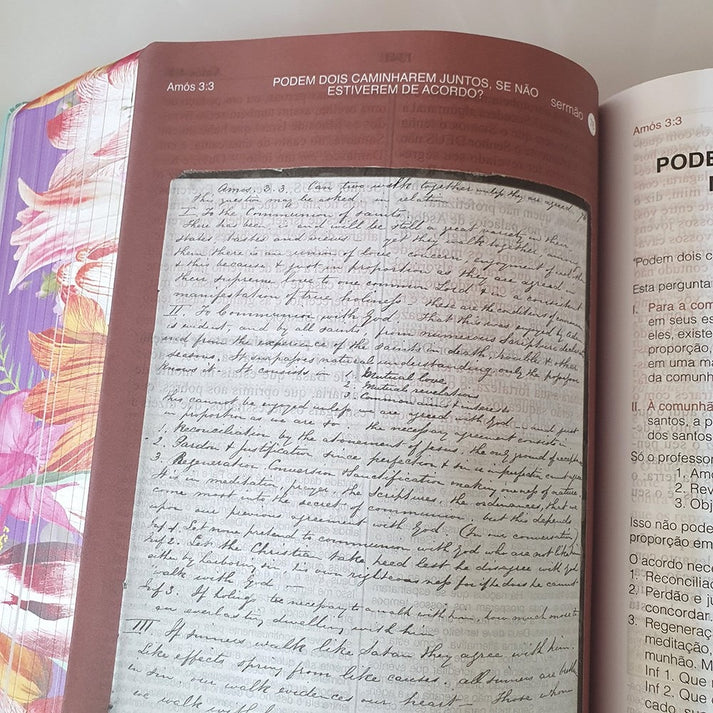 Amós 3:3
PODEM DOIS CAMINHAREM JUNTOS, SE NÃO
ESTIVEREM DE ACORDO?
sermão
Amos. 3. 3. Can two walk together unless they are agreed
This question may be asked, in relation
I. To the Communion of saints.
There has been, is and will be still a great variety in their
states tastes and views yet they walk together
them there is one union of love, concern, enjoyment
& this because & just in proportion as they are agreed in
their supreme love to one common Lord & in a consistent
manifestation of true holiness. these are the conditions of
II. To Communion with God. That this was enjoyed by
is evident, and by all saints from numerous Scripture
and from the experience of the saints in death, trouble & other
seasons. It surpasses natural understanding, only the professor
knows it. It consists in 1. Mutual love
2. Mutual revelation
3. Common object & interests
This cannot be enjoyed unless we are agreed with God and just
in proportion as we are so. The necessary agreement consists in
1. Reconciliation by the atonement of Jesus the only ground of acceptance
2. Pardon & justification since perfection & sin
3. Regeneration Conversion & sanctification making oneness of nature.
It is in meditation, prayer, the Scriptures, the ordinances, that we
come most into the secret of communion, but this depends
upon our previous agreement with God. (In our conversation)
Inf 1. Let none pretend to communion with God who are not like him
Inf 2. Let the Christian take heed lest he disagree with God
either by harboring sin, his own righteousness for if he does he cannot
walk with God.
Inf 3. If holiness be necessary to a walk with him, how much more to
an everlasting dwelling with him.
III. If sinners walk like Satan they agree with him.
Like effects spring from like causes. all sinners are
in sin, our walk evidences our heart – Those whom
we walk with
Amós 3:3
PODE
"Podem dois c
Esta pergunta
I. Para a com
em seus es
eles, existe
proporção,
em uma ma
da comunh
II. À comunhã
santos, a p
dos santos
Só o professor
1. Amo
2. Rev
3. Obj
Isso não pode
proporção em
O acordo nece
1. Reconciliaç
2. Perdão e ju
concordar.
3. Regeneraç
meditação,
munhão. M
Inf 1. Que n
Inf 2. Que
cado, sua